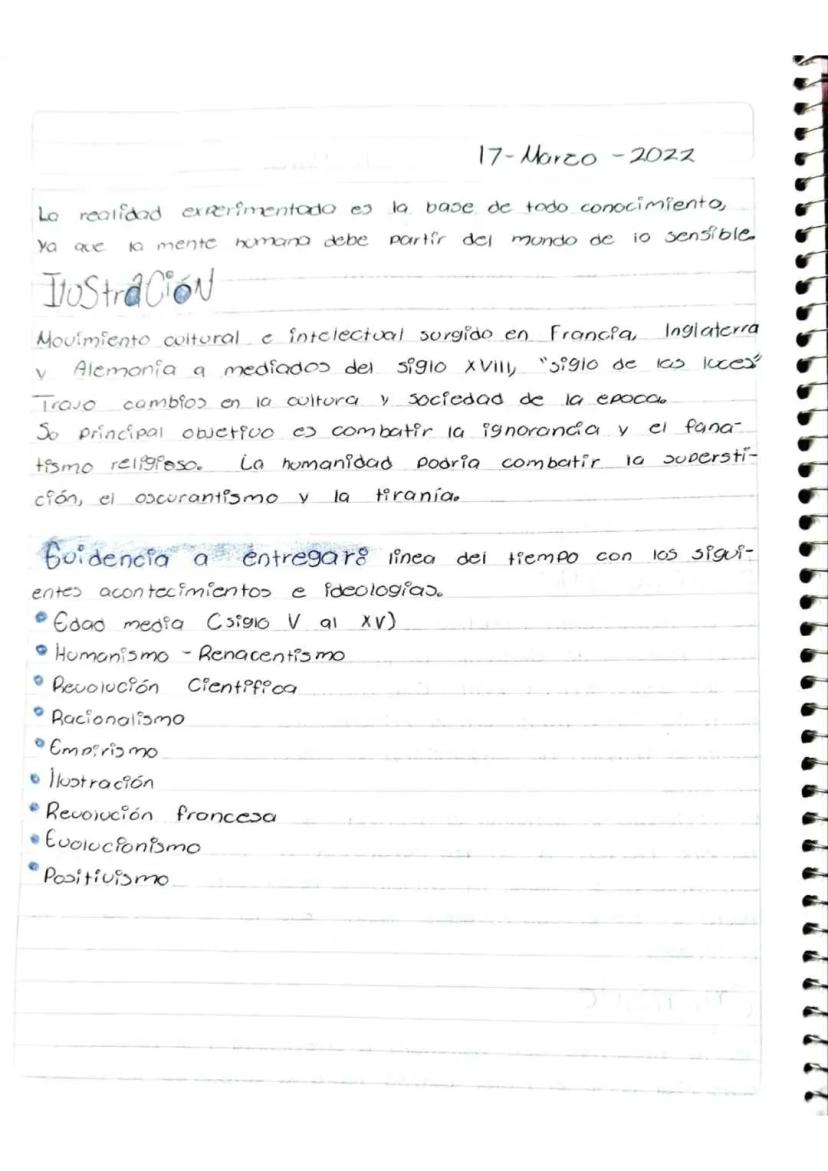 17-Marzo-2022
La realidad experimentada es la base de todo conocimiento,
ya que la mente humana debe partir del mundo de lo sensible.
IluStraCión
Movimiento cultural e intelectual surgido en Francia, Inglaterra
y Alemania a mediados del siglo XVIII, "siglo de las luces"
Trajo cambios en la cultura y sociedad de la epoca.
Su principal objetivo es combatir la ignorancia y el fana-
tismo religioso. La humanidad podria combatir la supersti-
ción, el oscurantismo y la tiranía.
Evidencia a entregar: línea del tiempo con los sigui-
entes acontecimientos e ideologías.
• Edad media (siglo V al XV)
• Humanismo - Renacentismo
• Revolución Científica
• Racionalismo
• Empirismo
• Ilustración
• Revolución francesa
• Evolucionismo
• Positivismo